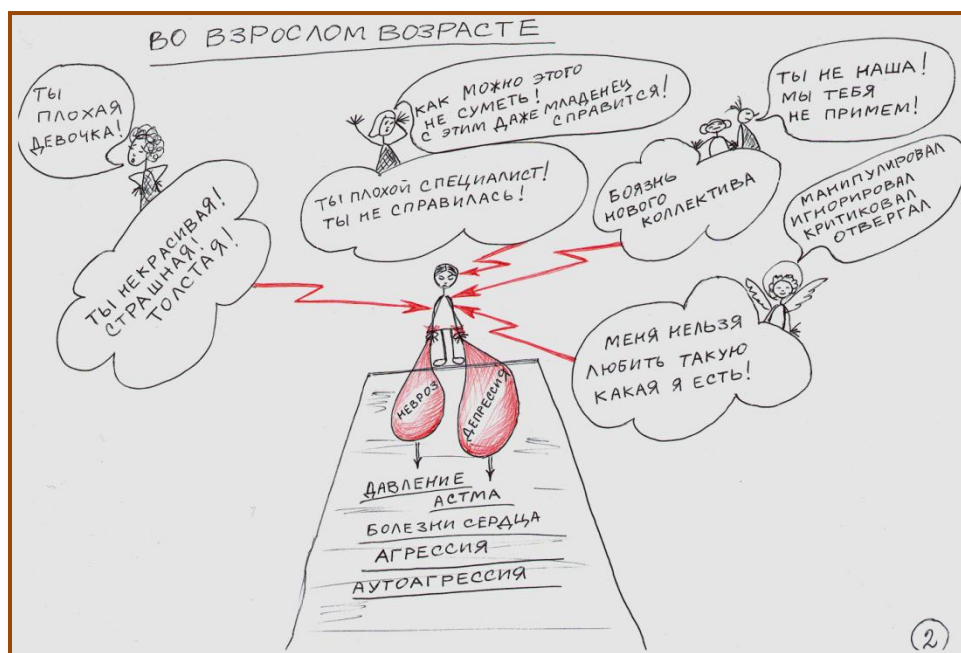 ВО ВЗРОСЛОМ ВОЗРАСТЕ
ТЫ
ПЛОХАЯ
ДЕВОЧКА!
ТЫ НЕКРАСИВАЯ!
СТРАШНАЯ!
ТОЛСТАЯ!
КАК МОЖНО ЭТОГО
НЕ СУМЕТЬ!
С ЭТИМ ДАЖЕ МЛАДЕНЕЦ
СПРАВИТСЯ!
ТЫ ПЛОХОЙ СПЕЦИАЛИСТ!
ТЫ НЕ СПРАВИЛАСЬ!
ТЫ НЕ НАША!
МЫ ТЕБЯ
НЕ ПРИМЕМ!
БОЯЗНЬ
НОВОГО
КОЛЛЕКТИВА
МАНИПУЛИРОВАЛ
ИГНОРИРОВАЛ
КРИТИКОВАЛ
ОТВЕРГАЛ
МЕНЯ НЕЛЬЗЯ
ЛЮБИТЬ ТАКУЮ
КАКАЯ Я ЕСТЬ!
НЕВРОЗ
ДЕПРЕССИЯ
ДАВЛЕНИЕ
АСТМА
БОЛЕЗНИ СЕРДЦА
АГРЕССИЯ
АУТОАГРЕССИЯ
2